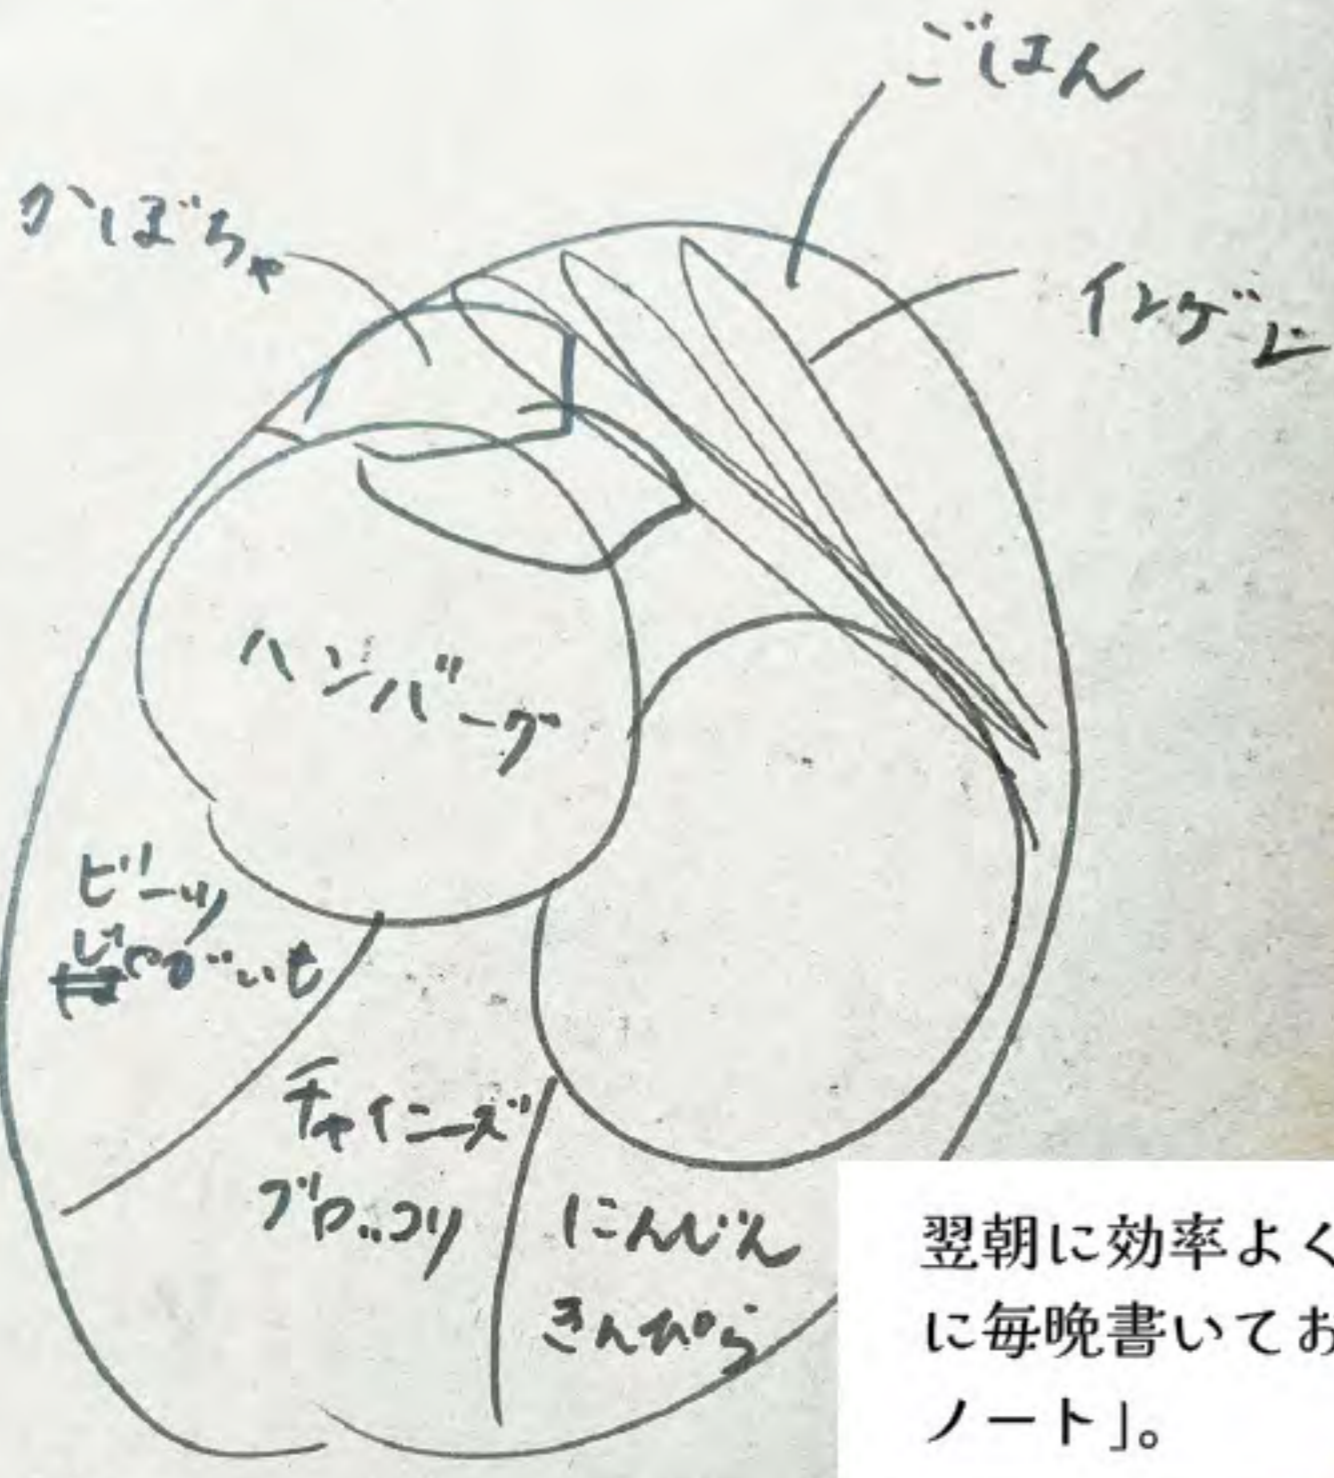 ごはん
かぼちゃ
インゲン
ハンバーグ
ビーツ
じゃがいも
チャイニーズ
ブロッコリ
にんじん
きんぴら
翌朝に効率よく
に毎晩書いてお
ノート」。